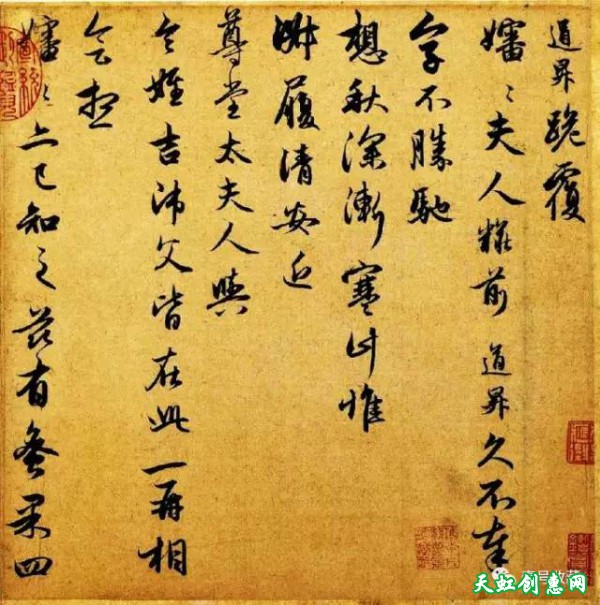 道昇跪覆
嬸〻夫人糚前道昇久不奉
字不勝馳
想秋深漸寒計惟
淑履清安近
尊堂太夫人與
令姪吉師父皆在此一再相
會想
嬸〻亦已知之茲有蜜果四
天虹创惠网